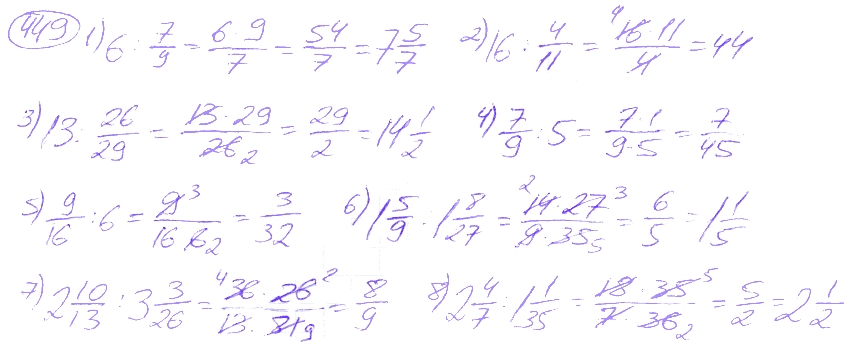 449 1) 6 : 7/9 = (6·9)/7 = 54/7 = 7 5/7 2) 16 : 4/11 = (16·11)/4 = 44
3) 13 : 26/29 = (13·29)/26 2 = 29/2 = 14 1/2 4) 7/9 : 5 = (7·1)/(9·5) = 7/45
5) 9/16 : 6 = 9 3/(16·6 2) = 3/32 6) 1 5/9 : 1 8/27 = (2 14·27 3)/(9·35 5) = 6/5 = 1 1/5
7) 2 10/13 : 3 3/26 = (4 36·26 2)/(13·81 9) = 8/9 8) 2 4/7 : 1 1/35 = (18·35 5)/(7·36 2) = 5/2 = 2 1/2